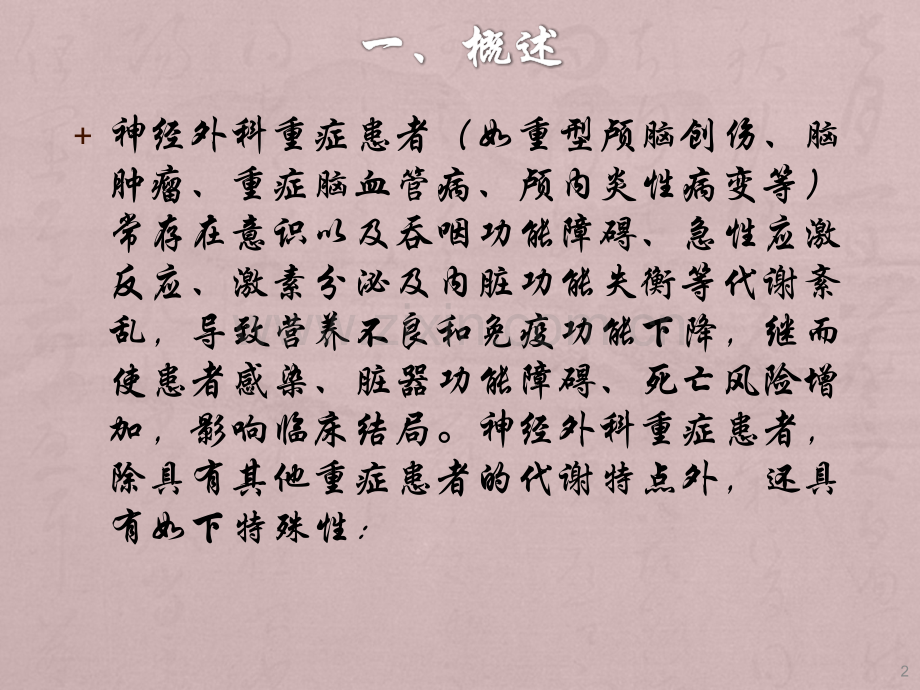 一、概述
+ 神经外科重症患者（如重型颅脑创伤、脑
肿瘤、重症脑血管病、颅内炎性病变等）
常存在意识以及吞咽功能障碍、急性应激
反应、激素分泌及内脏功能失衡等代谢紊
乱，导致营养不良和免疫功能下降，继而
使患者感染、脏器功能障碍、死亡风险增
加，影响临床结局。神经外科重症患者，
除具有其他重症患者的代谢特点外，还具
有如下特殊性：
2